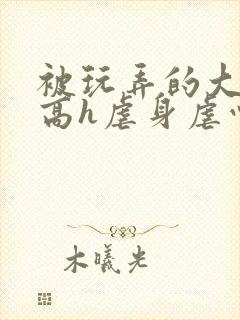 被玩弄的大
高h虐身虐
木曦光